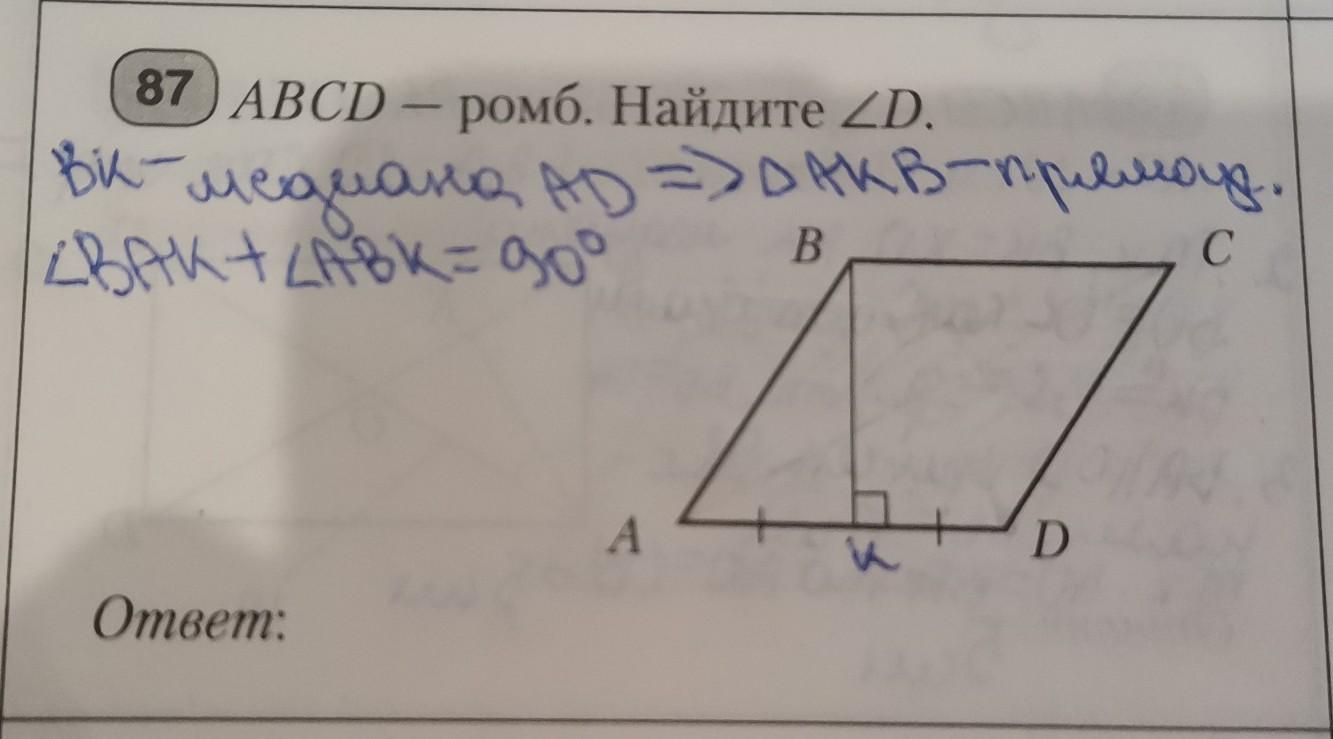 87 ABCD — ромб. Найдите ∠D.
BK - медиана AD => △AKB - прямоуг.
∠BAK + ∠ABK = 90°
B
C
A
K
D
Ответ: